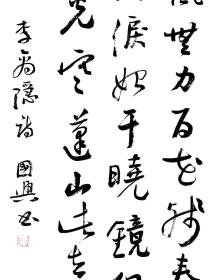 風無力百花殘春
淚始干曉鏡但
光寒蓬山此去
李商隱詩 國興书